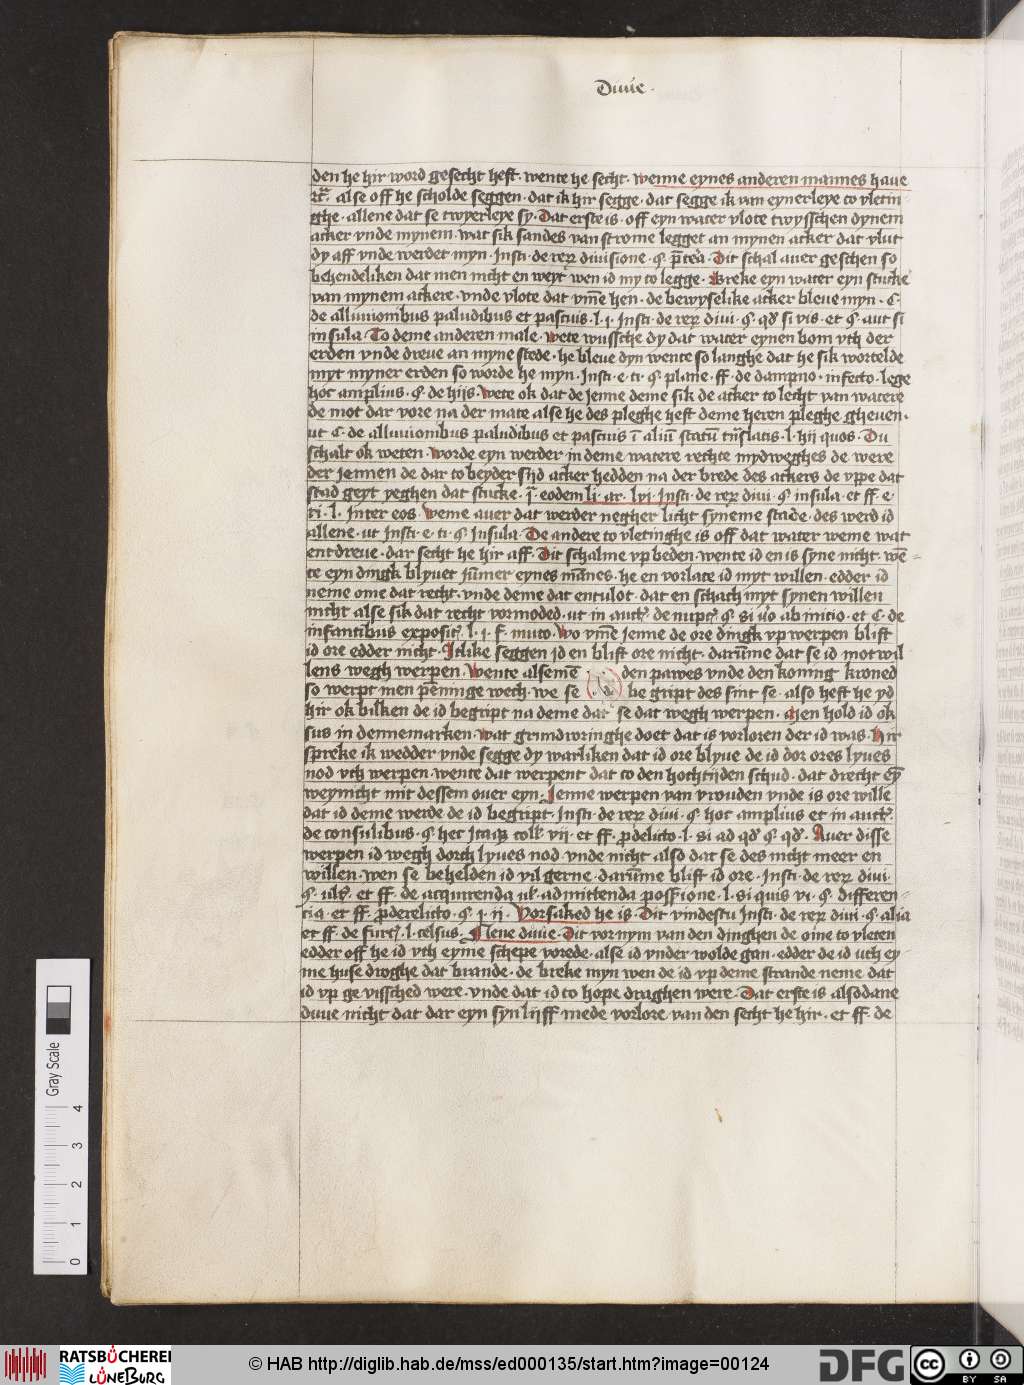 Duue
den he hir word gesecht heft. wente he secht. wenne eynes anderen mannes haue
alse off he scholde seggen. dat ik hir segge. dat segge ik van eynerleye to vletin
ghe. allene dat se twyerleye sy. Dat erste is. off eyn water vlote twysschen dynem
acker vnde mynem. wat sik sandes van strome legget an mynen acker dat vlut
dy aff vnde werdet myn. Insti. de reꝝ diuisione. §. Dit schal auer geschen so
behendeliken dat men nicht en weyt wen id my to legge. Breke eyn water eyn stucke
van mynem ackere. vnde vlote dat hen. de bewyselike acker bleue myn. C.
de alluuionibus paludibus et pascuis. l. i. Insti. de reꝝ diui. §. qd si vis. et §. aut si
insula. To deme anderen male. wete wussche dy dat water eynen bom vth der
erden vnde dreue an myne stede. he bleue dyn wente so langhe dat he sik wortelde
myt myner erden so worde he myn. Insti. e. ti. §. plane. ff. de dampno. infecto. lege
hoc amplius. §. de hijs. Wete ok dat de jenne deme sik de acker to lecht van watere
de mot dar vore na der mate alse he des pleghe heft deme heren pleghe gheuen.
ut C. de alluuionibus paludibus et pascuis l. hij quos. Du
schalt ok weten. worde eyn werder in deme watere rechte mydweghes de were
der jennen de dar to beyder sijd acker hedden na der brede des ackers de vppe dat
stad geyt yeghen dat stucke. eodem li. ar. lvi. Insti. de reꝝ diui. § insula. et ff. e.
ti. l. Inter eos. Weme auer dat werder negher licht syneme stade. des werd id
allene. ut Insti. e. ti. §. Insula. De andere to vletinghe is off dat water weme wat
entdreue. dar secht he hir aff. Dit schalme vp beden. wente id en is syne nicht. wē
te eyn dingk blyuet jūmer eynes mānes. he en vorlate id myt willen. edder id
neme ome dat recht. vnde deme dat entulot. dat en schach myt synen willen
nicht alse sik dat recht vormoded. ut in auct. de nupt. §. si ab inicio. et C. de
infantibus exposit. l. i. Wo jenne de ore dingk vp werpen blift
id ore edder nicht. Itlike seggen jd en blift ore nicht. darūme dat se id mot wil
lens wegh werpen. Wente alsemē den pawes vnde den koning kroned
so werpt men pēnnige wech. we se be gript des sint se. also heft he yd
hir ok bilken de id begript na deme dar se dat wegh werpen. Men hold id ok
sus in dennemarken. wat grundworinghe doet dat is vorloren der id was. Hir
spreke ik wedder vnde segge dy warliken dat id ore blyue de id dor ores lyues
nod vth werpen. wente dat werpent dat to den hochtijden schud. dat drecht
weynicht mit dessem ouer eyn. Jenne werpen van vrouden vnde is ore wille
dat id deme werde de id begript. Insti. de reꝝ diui. §. hoc amplius et in auct.
de consulibus. §. hec Itaqꝫ coll. vij. et ff. pdelicto. l. si ad qd §. qd. Auer disse
werpen id wegh dorch lyues nod vnde nicht also dat se des nicht meer en
willen. wen se behelden id vil gerne. darūme blift id ore. Insti. de reꝝ diui.
§. et ff. de acquirenda ul. admittenda possione. l. si quis vi. §. differen
cia. et ff. pderelicto. §. i. ij. Vorsaked he is. Dit vindestu Insti. de reꝝ diui. §. alia
et ff. de furt. l. celsus. Neue duue. Dit vornym van den djnghen de ome to vleten
edder off he id vth eyme schepe vorede. alse id vnder wolde gan. edder de id uth ey
me huse droghe dat brande. de breke myn wen de id vp deme strande neme dat
id vp ge visssched were. vnde dat id to hope draghen were. Dat erste is alsodane
duue nicht dat dar eyn syn lijff mede vorlore. van den secht he hir. et ff. de
Gray Scale
0 1 2 3 4
RATSBÜCHEREI
LÜNEBURG
© HAB http://diglib.hab.de/mss/ed000135/start.htm?image=00124
DFG
cc
BY SA